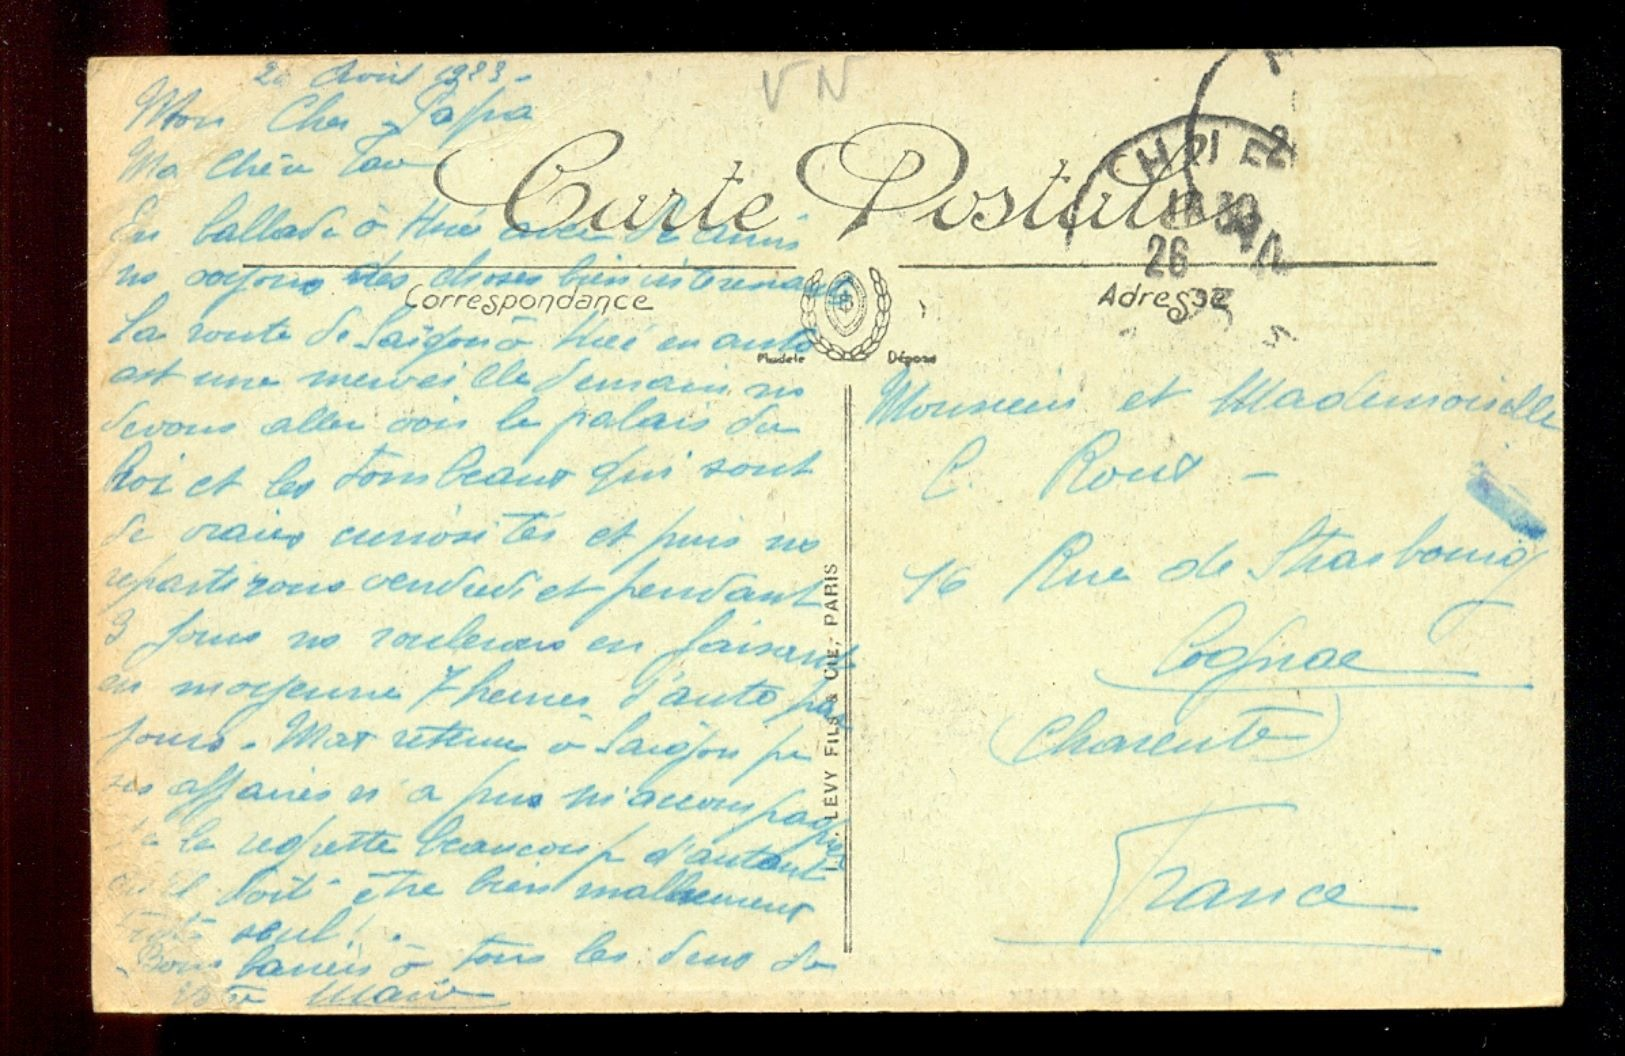 VN
Avril
Mon Cher Papa
Ma Chère
En ballade à Hué avec de amis
ns voyons des choses bien interessantes
La route de Saïgon à Hué en auto
est une merveille demain ns
devons aller voir le palais du
Roi et les tombeaux qui sont
de vraies curiosités et puis ns
repartirons vendredi et pendant
3 jours ns roulerons en faisant
en moyenne 7 heures d'auto par
jours. Max retenu à Saïgon pr
ses affaires n'a pus m'accompagner
je le regrette beaucoup d'autant
qu'il doit être bien malheureux
tout seul!
Bons baisers à tous les deux de
votre Marie
Carte Postale
Correspondance
Adresse
Modèle Déposé
LÉVY FILS & CIE, PARIS
26
Monsieur et Mademoiselle
C. Roux -
16 Rue de Strasbourg
Cognac
(Charente)
France